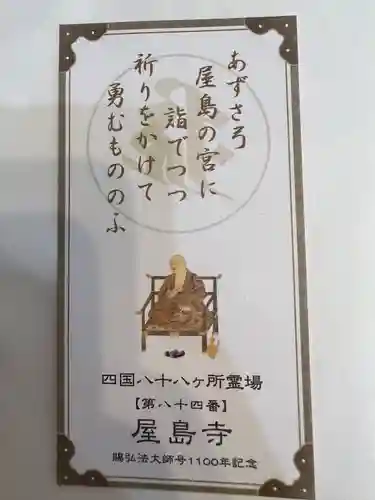 あずさ弓
屋島の宮に
詣でつつ
祈りをかけて
勇むもののふ
四国八十八ヶ所霊場
【第八十四番】
屋島寺
賜弘法大師号1100年記念